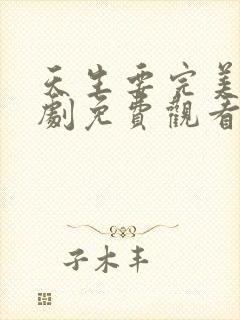 天生要完美
劇免費觀看
子木丰